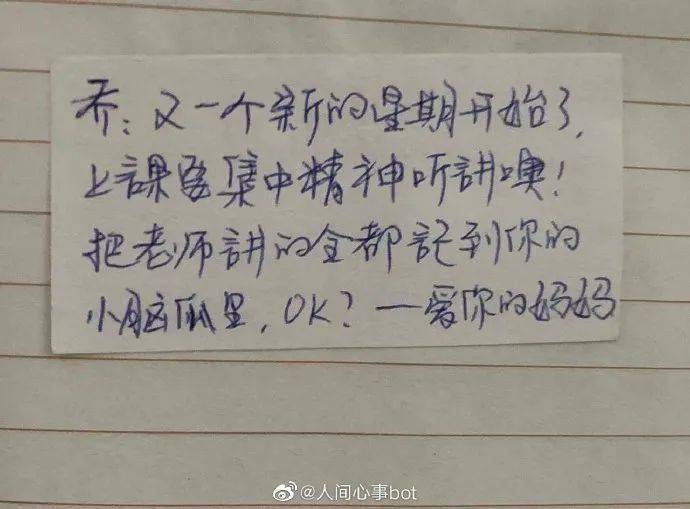 乔：又一个新的星期开始了，
上課要集中精神听講噢！
把老师講的全都記到你的
小脑瓜里，OK？—爱你的妈妈
@人间心事bot